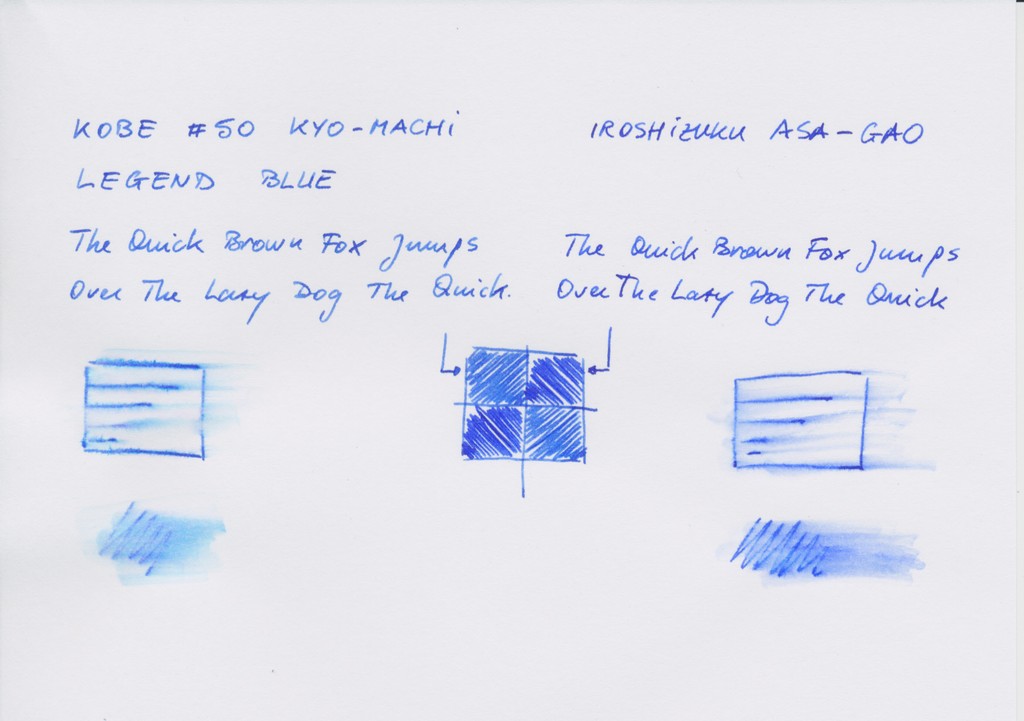 KOBE #50 KYO-MACHI
LEGEND BLUE
The Quick Brown Fox Jumps
Over The Lazy Dog The Quick.
IROSHIZUKU ASA-GAO
The Quick Brown Fox Jumps
Over The Lazy Dog The Quick